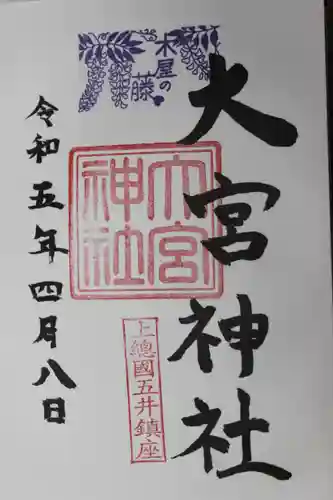 木屋の
藤
大宮神社
大宮
神社
上總國五井鎮座
令和五年四月八日